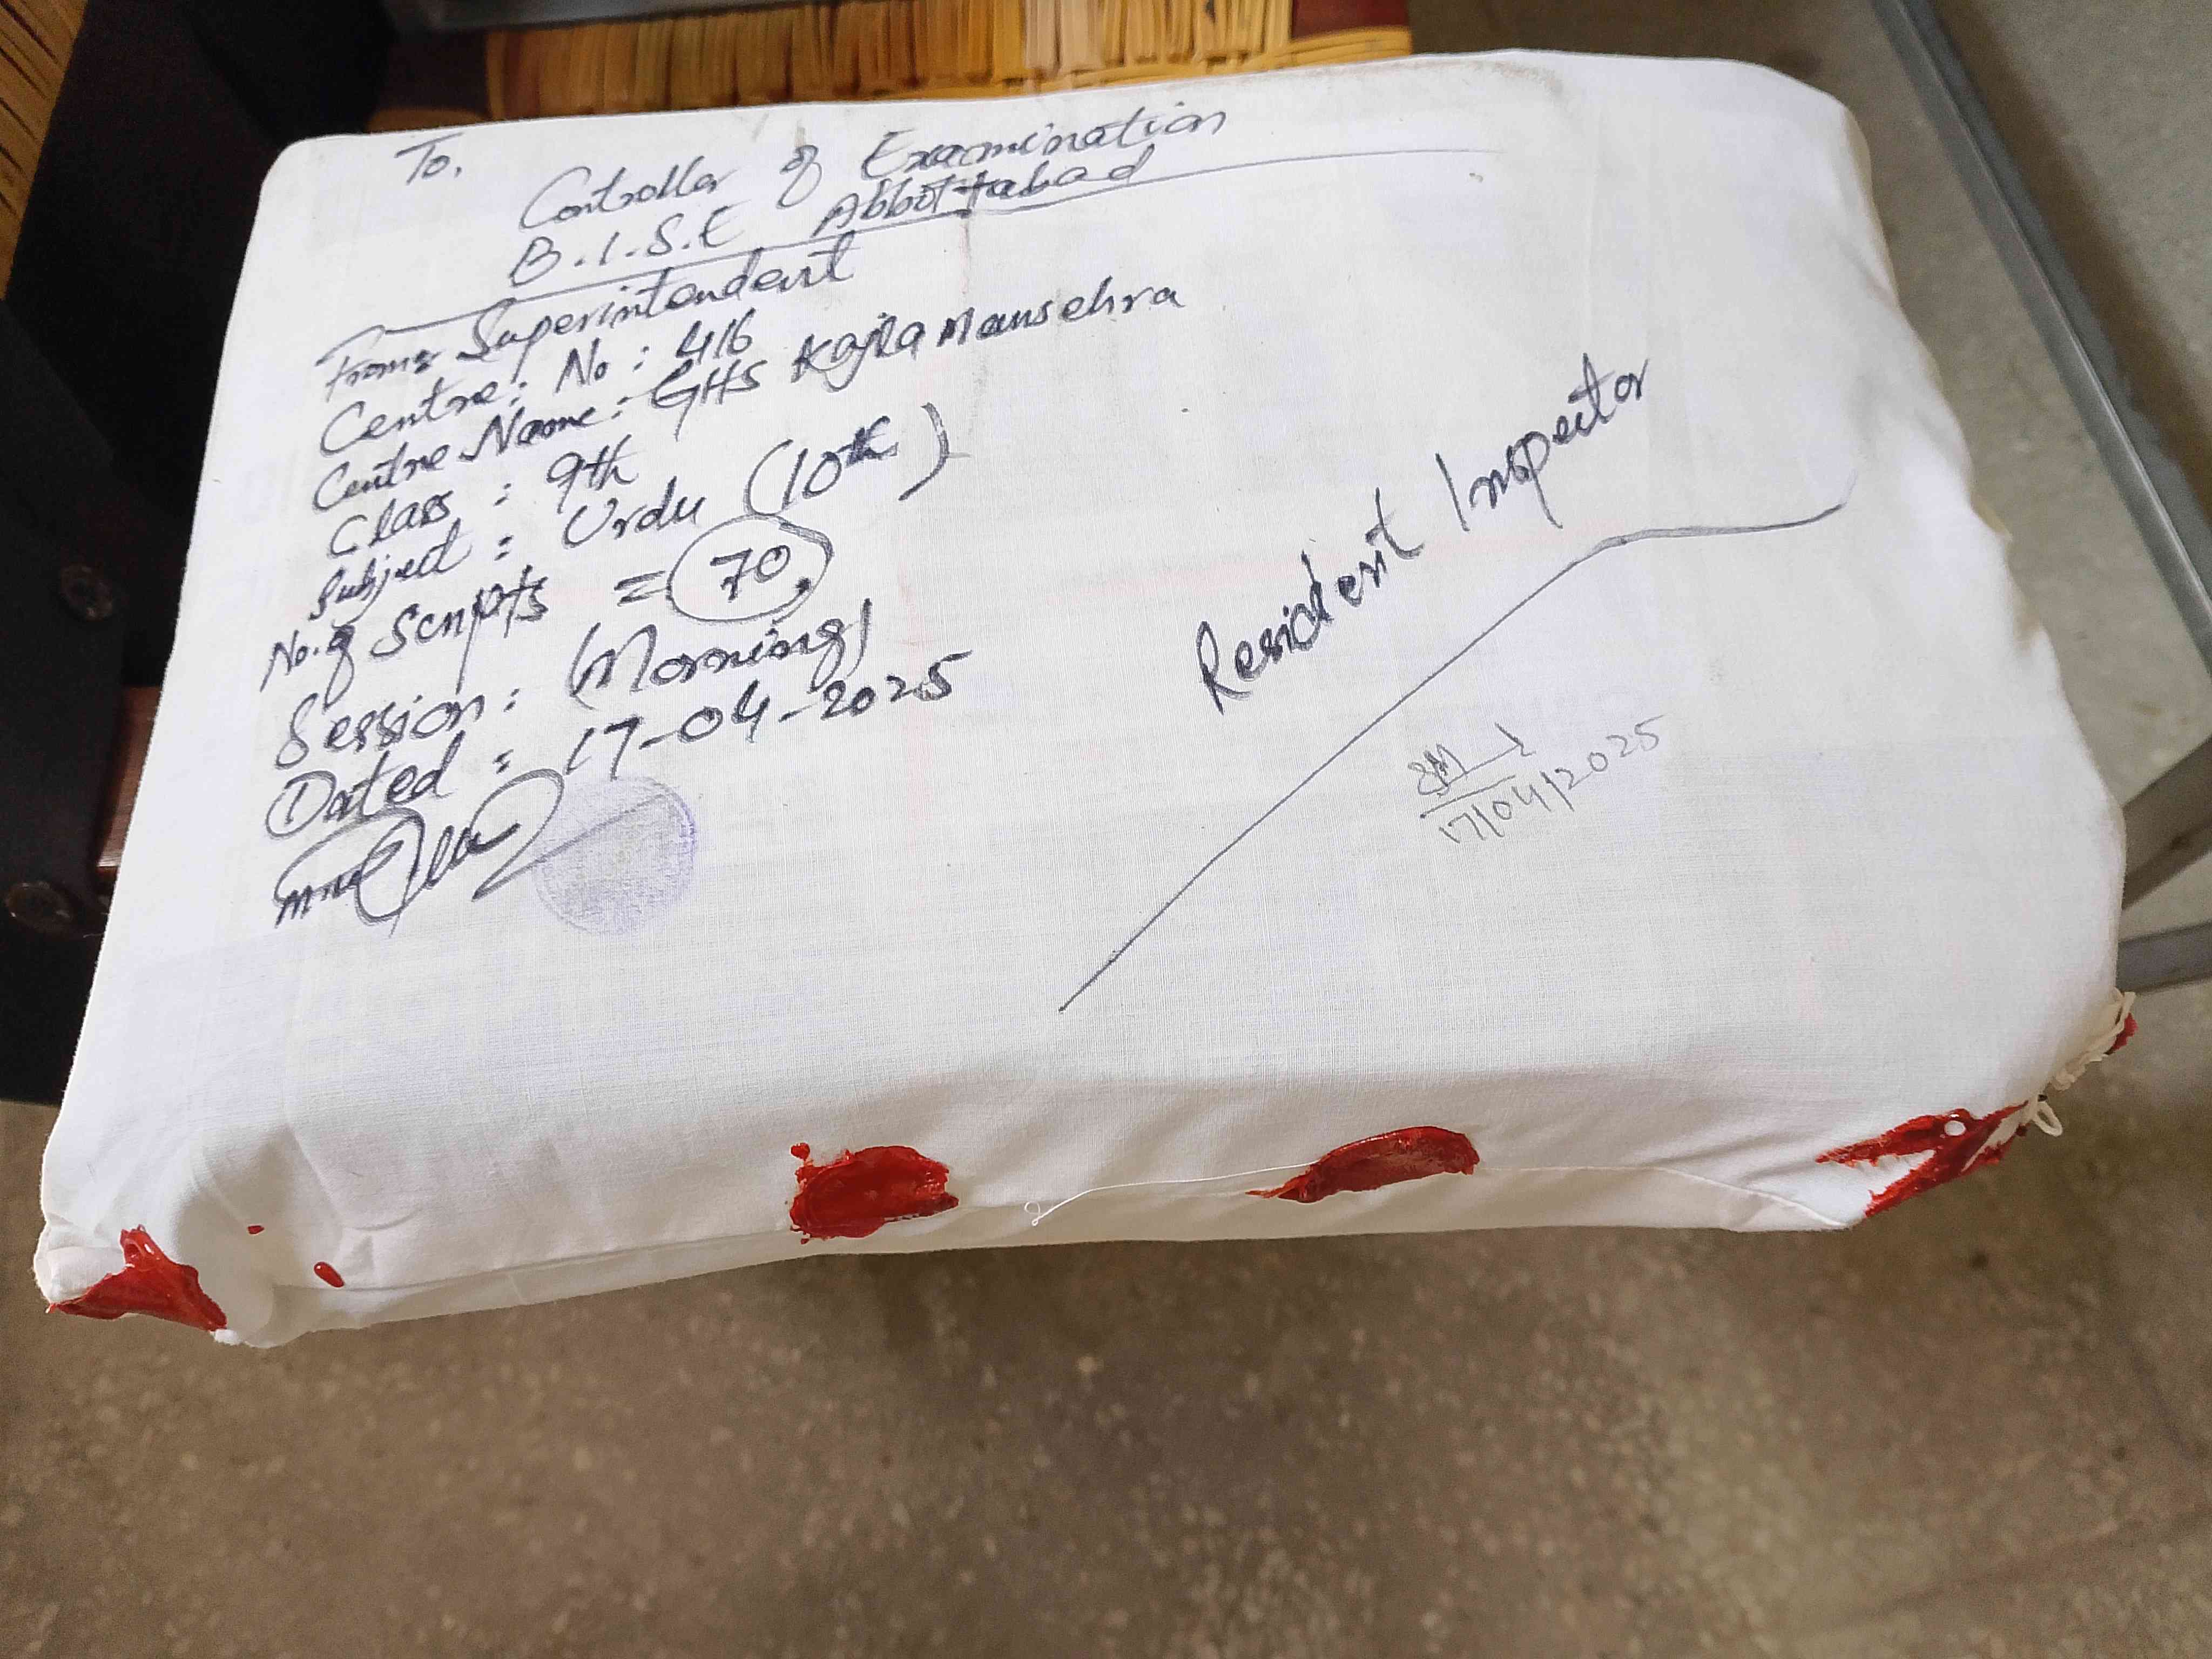 To,
Controller of Examination
B.I.S.E Abbottabad
From: Superintendent
Centre: No: 416
Centre Name: GHS Kajla Mansehra
Class : 9th
Subject : Urdu (10th)
No. of Scripts = 70
Session: (Morning)
Dated : 17-04-2025
Resident Inspector
17/04/2025